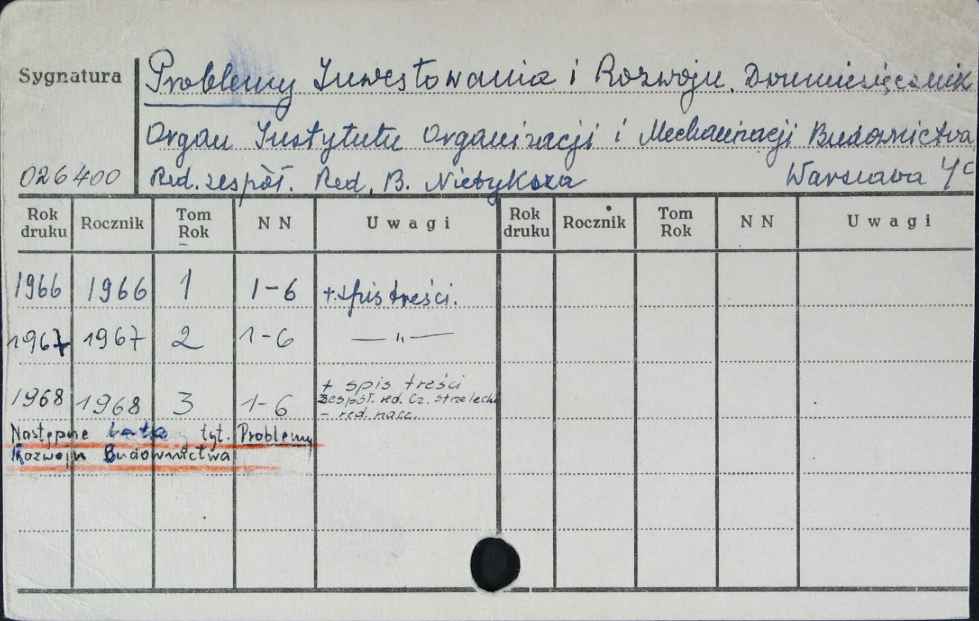 Problemy Inwestowania i Rozwoju. Dwumiesięcznik
Sygnatura
Organ Instytutu Organizacji i Mechanizacji Budownictwa
026400 Red. zespół. Red. B. Nietyksza Warszawa
Rok druku Rocznik Tom Rok NN Uwagi Rok druku Rocznik Tom Rok NN Uwagi
1966 1966 1 1-6 + spis treści.
1967 1967 2 1-6 — " —
1968 1968 3 1-6 + spis treści
zespół. red. Cz. Strzelecki
- red. nacz.
Następne lata tyt. Problemy
Rozwoju Budownictwa